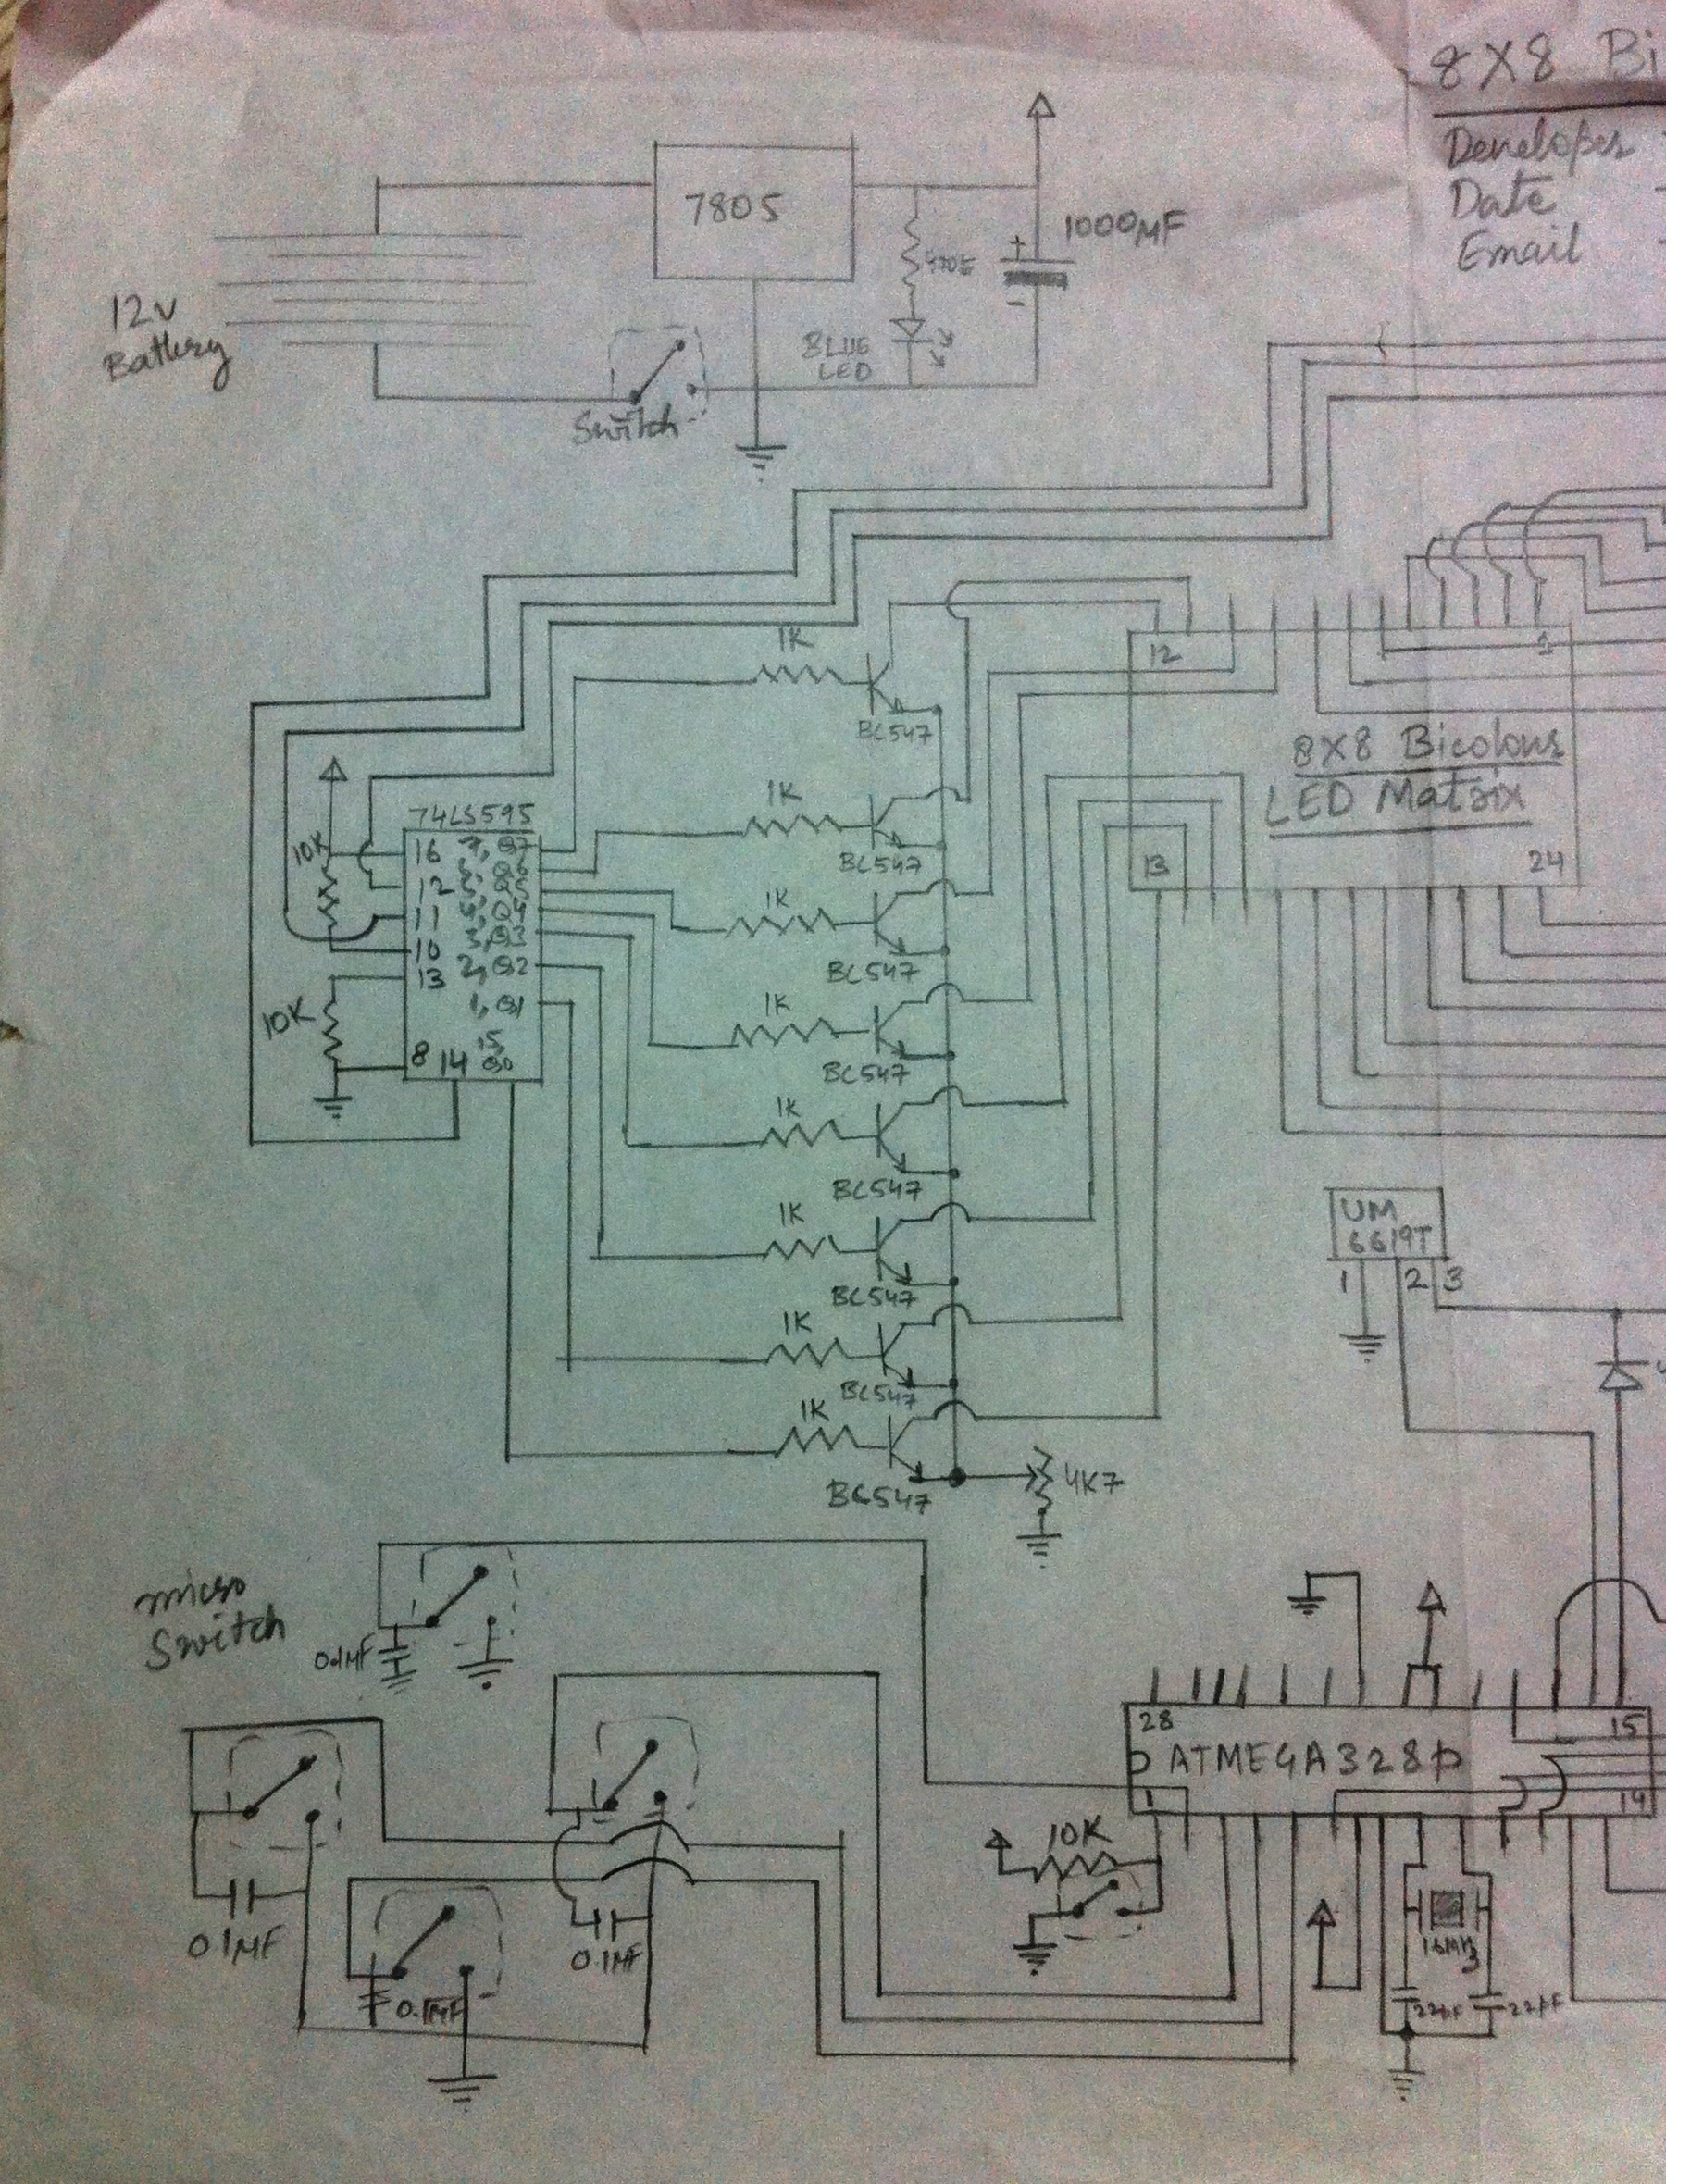 8X8 Bi
Developer
Date
Email
7805
1000µF
470E
12V
Battery
BLUE
LED
Switch
1K
BC547
12
1
8X8 Bicolour
LED Matrix
13
24
1K
BC547
74LS595
10K
16 7, Q7
6, Q6
12 5, Q5
11 4, Q4
3, Q3
10
13 2, Q2
1, Q1
10K
8 14 15,
Q0
1K
BC547
1K
BC547
1K
BC547
1K
BC547
1K
BC547
1K
BC547
4K7
UM
6619T
1 2 3
micro
Switch
0.1MF
28
15
ATMEGA328p
1
14
10K
0.1MF
0.1MF
0.1MF
16MHz
22pF
22pF